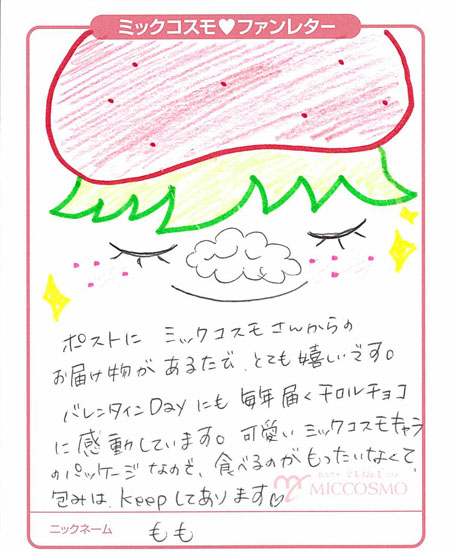 ミックコスモ♥ファンレター
ポストに ミックコスモさんからの
お届け物が あるたび、とても嬉しいです。
バレンタインDayにも 毎年届くチロルチョコ
に感動しています。可愛いミックコスモキャラ
のパッケージなので、食べるのがもったいなくて、
包みは、keepしてあります♡
MICCOSMO
ニックネーム もも